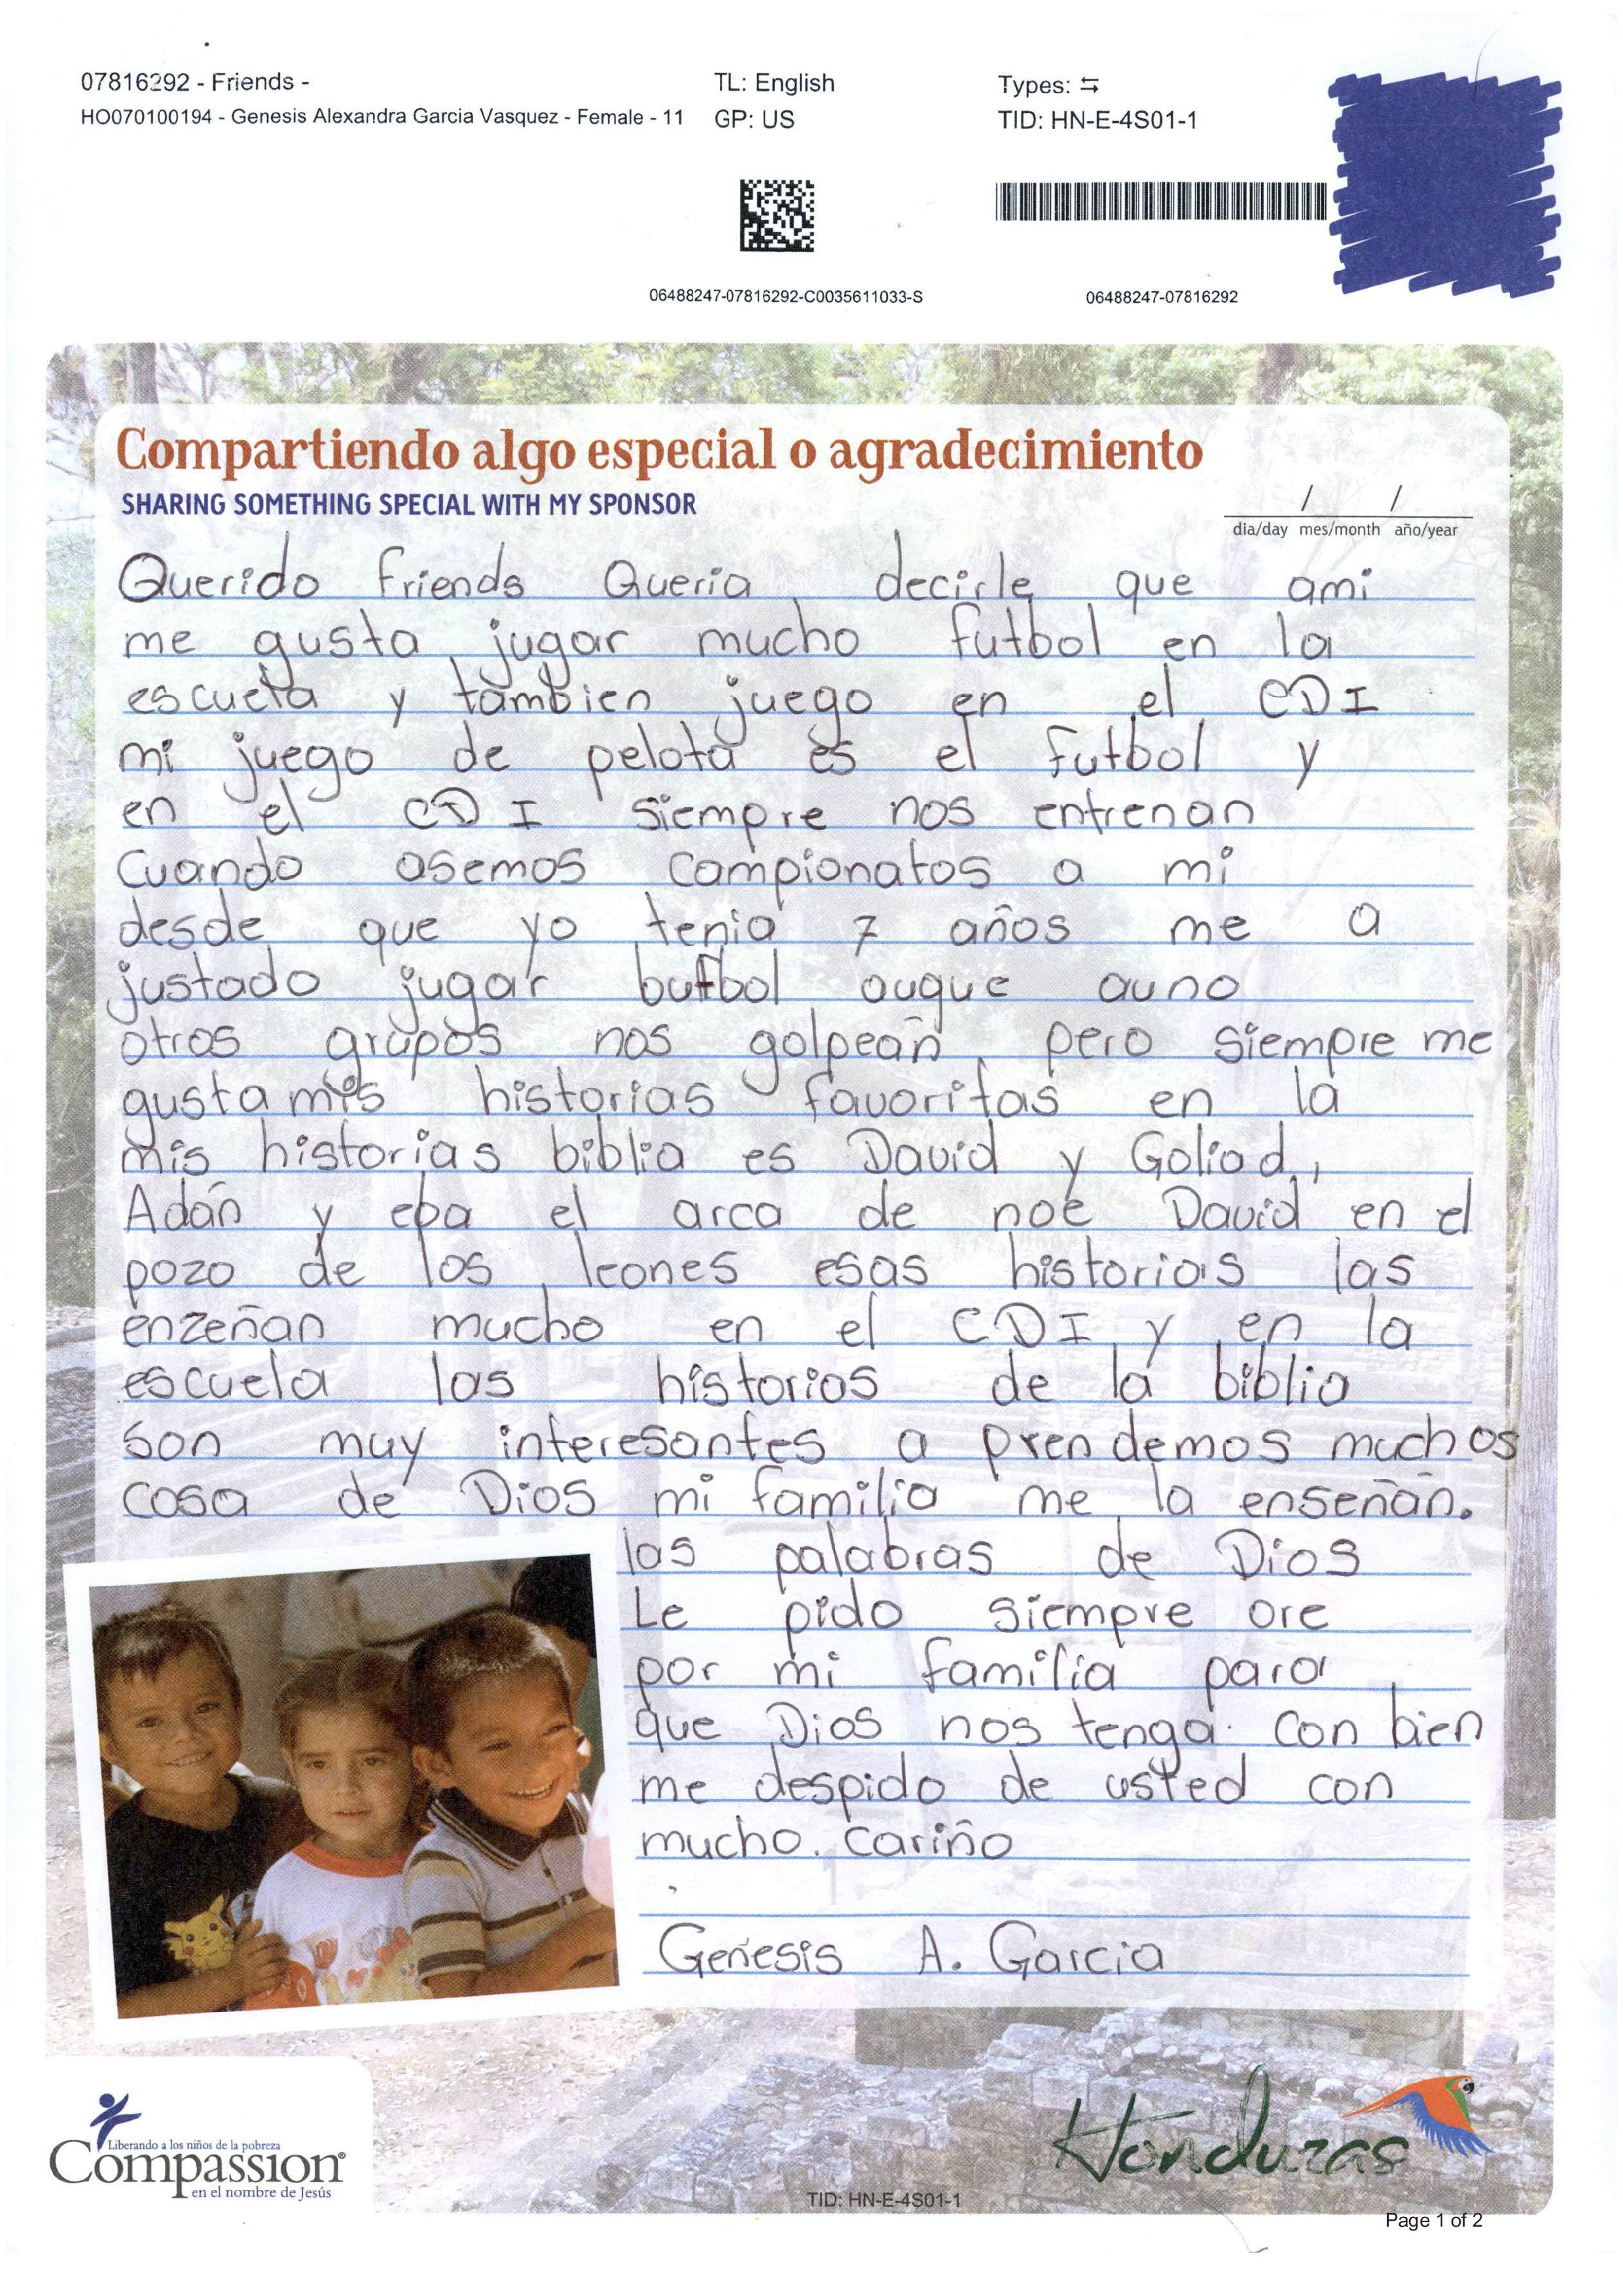 07816292 - Friends -
TL: English
Types: ⇆
HO070100194 - Genesis Alexandra Garcia Vasquez - Female - 11
GP: US
TID: HN-E-4S01-1
06488247-07816292-C0035611033-S
06488247-07816292
Compartiendo algo especial o agradecimiento
SHARING SOMETHING SPECIAL WITH MY SPONSOR
/ /
dia/day mes/month año/year
Querido Friends Queria decirle que ami
me gusta jugar mucho futbol en la
escuela y tambien juego en el CDI
mi juego de pelota es el futbol y
en el CDI siempre nos entrenan
Cuando asemos campionatos a mi
desde que yo tenia 7 años me a
justado jugar butbol auque auno
otros grupos nos golpean, pero siempre me
gusta mis historias favoritas en la
mis historias biblia es David y Goliad,
Adán y eba el arca de noé David en el
pozo de los leones esas historias las
enzeñan mucho en el CDI y en la
escuela las historias de la biblia
son muy interesantes a prendemos muchos
cosa de Dios mi familia me la enseñan.
las palabras de Dios
Le pido siempre ore
por mi familia para
que Dios nos tenga con bien
me despido de usted con
mucho. cariño
Genesis A. Garcia
Liberando a los niños de la pobreza
Compassion®
en el nombre de Jesús
Honduras
TID: HN-E-4S01-1
Page 1 of 2